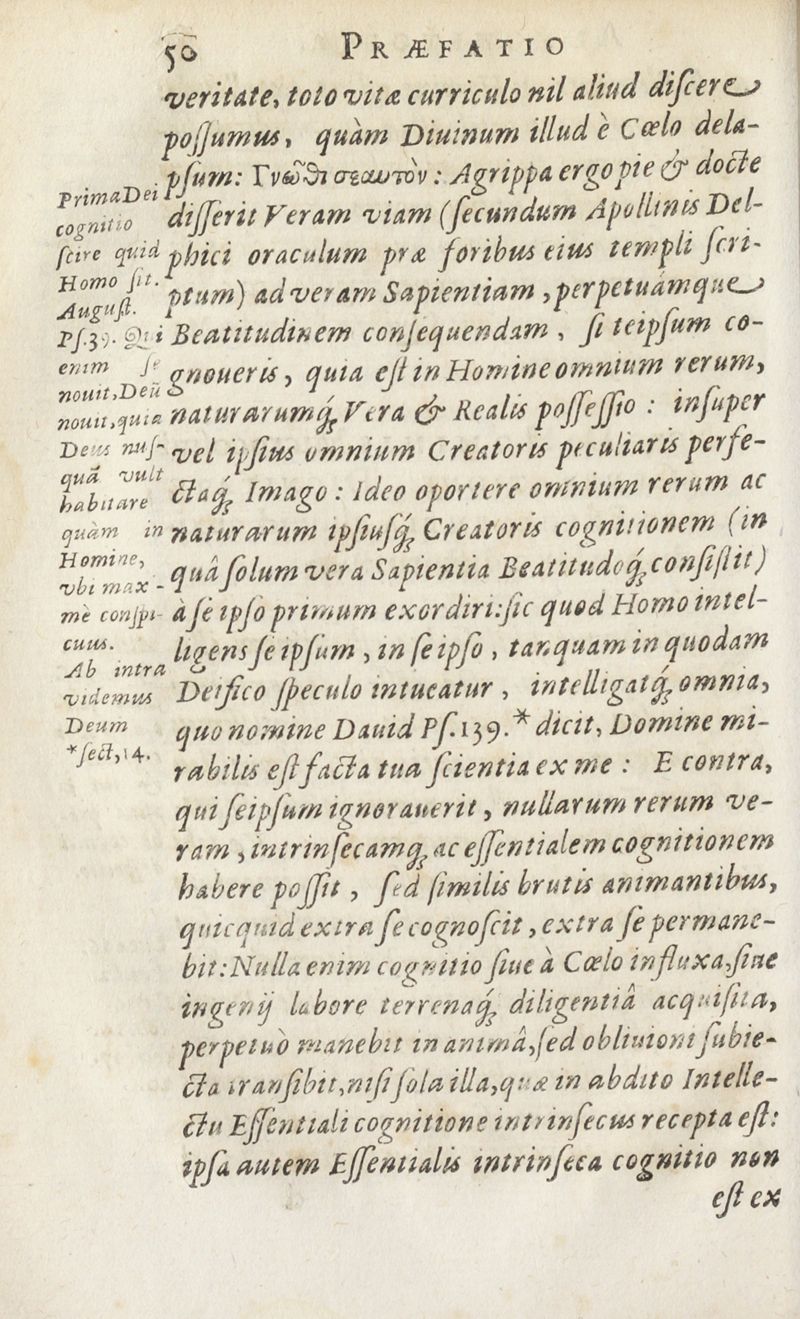 50 PRÆFATIO
veritate, toto vitæ curriculo nil aliud diſcere
poſſumus, quàm Diuinum illud è Cœlo dela-
pſum: Γνῶθι σεαυτὸν: Agrippa ergo pie & docte
diſſerit Veram viam (ſecundum Apollinis Del-
phici oraculum præ foribus eius templi ſcri-
ptum) ad veram Sapientiam, perpetuamque
Beatitudinem conſequendam, ſi teipſum co-
gnoueris, quia eſt in Homine omnium rerum,
naturarumq́; Vera & Realis poſſeſſio: inſuper
vel ipſius omnium Creatoris peculiaris perfe-
ctaq́; Imago: Ideo oportere omnium rerum ac
naturarum ipſiuſq́; Creatoris cognitionem (in
quâ ſolum vera Sapientia Beatitudoq́; conſiſtit)
à ſe ipſo primum exordiri: ſic quod Homo intel-
ligens ſe ipſum, in ſe ipſo, tanquam in quodam
Deifico ſpeculo intueatur, intelligatq́; omnia,
quo nomine Dauid Pſ.139.* dicit, Domine mi-
rabilis eſt facta tua ſcientia ex me: E contra,
qui ſeipſum ignorauerit, nullarum rerum ve-
ram, intrinſecamq́; ac eſſentialem cognitionem
habere poſſit, ſed ſimilis brutis animantibus,
quicquid extra ſe cognoſcit, extra ſe permane-
bit: Nulla enim cognitio ſiue à Cœlo influxa, ſine
ingenij labore terrenaq́; diligentiâ acquiſita,
perpetuò manebit in animâ, ſed obliuioni ſubie-
cta tranſibit, niſi ſola illa, quæ in abdito Intelle-
ctu Eſſentiali cognitione intrinſecus recepta eſt:
ipſa autem Eſſentialis intrinſeca cognitio non
eſt ex
Prima Dei
cognitio
ſcire quid
Homo ſit.
Auguſt.
Pſ.39. Qui
enim ſe
nouit, Deū
nouit, quia
Deus nuſ-
quã vult
habitare
quàm in
Homine,
vbi max-
mè conſpi-
cuus.
Ab intra
videmus
Deum
*ſect, 14.